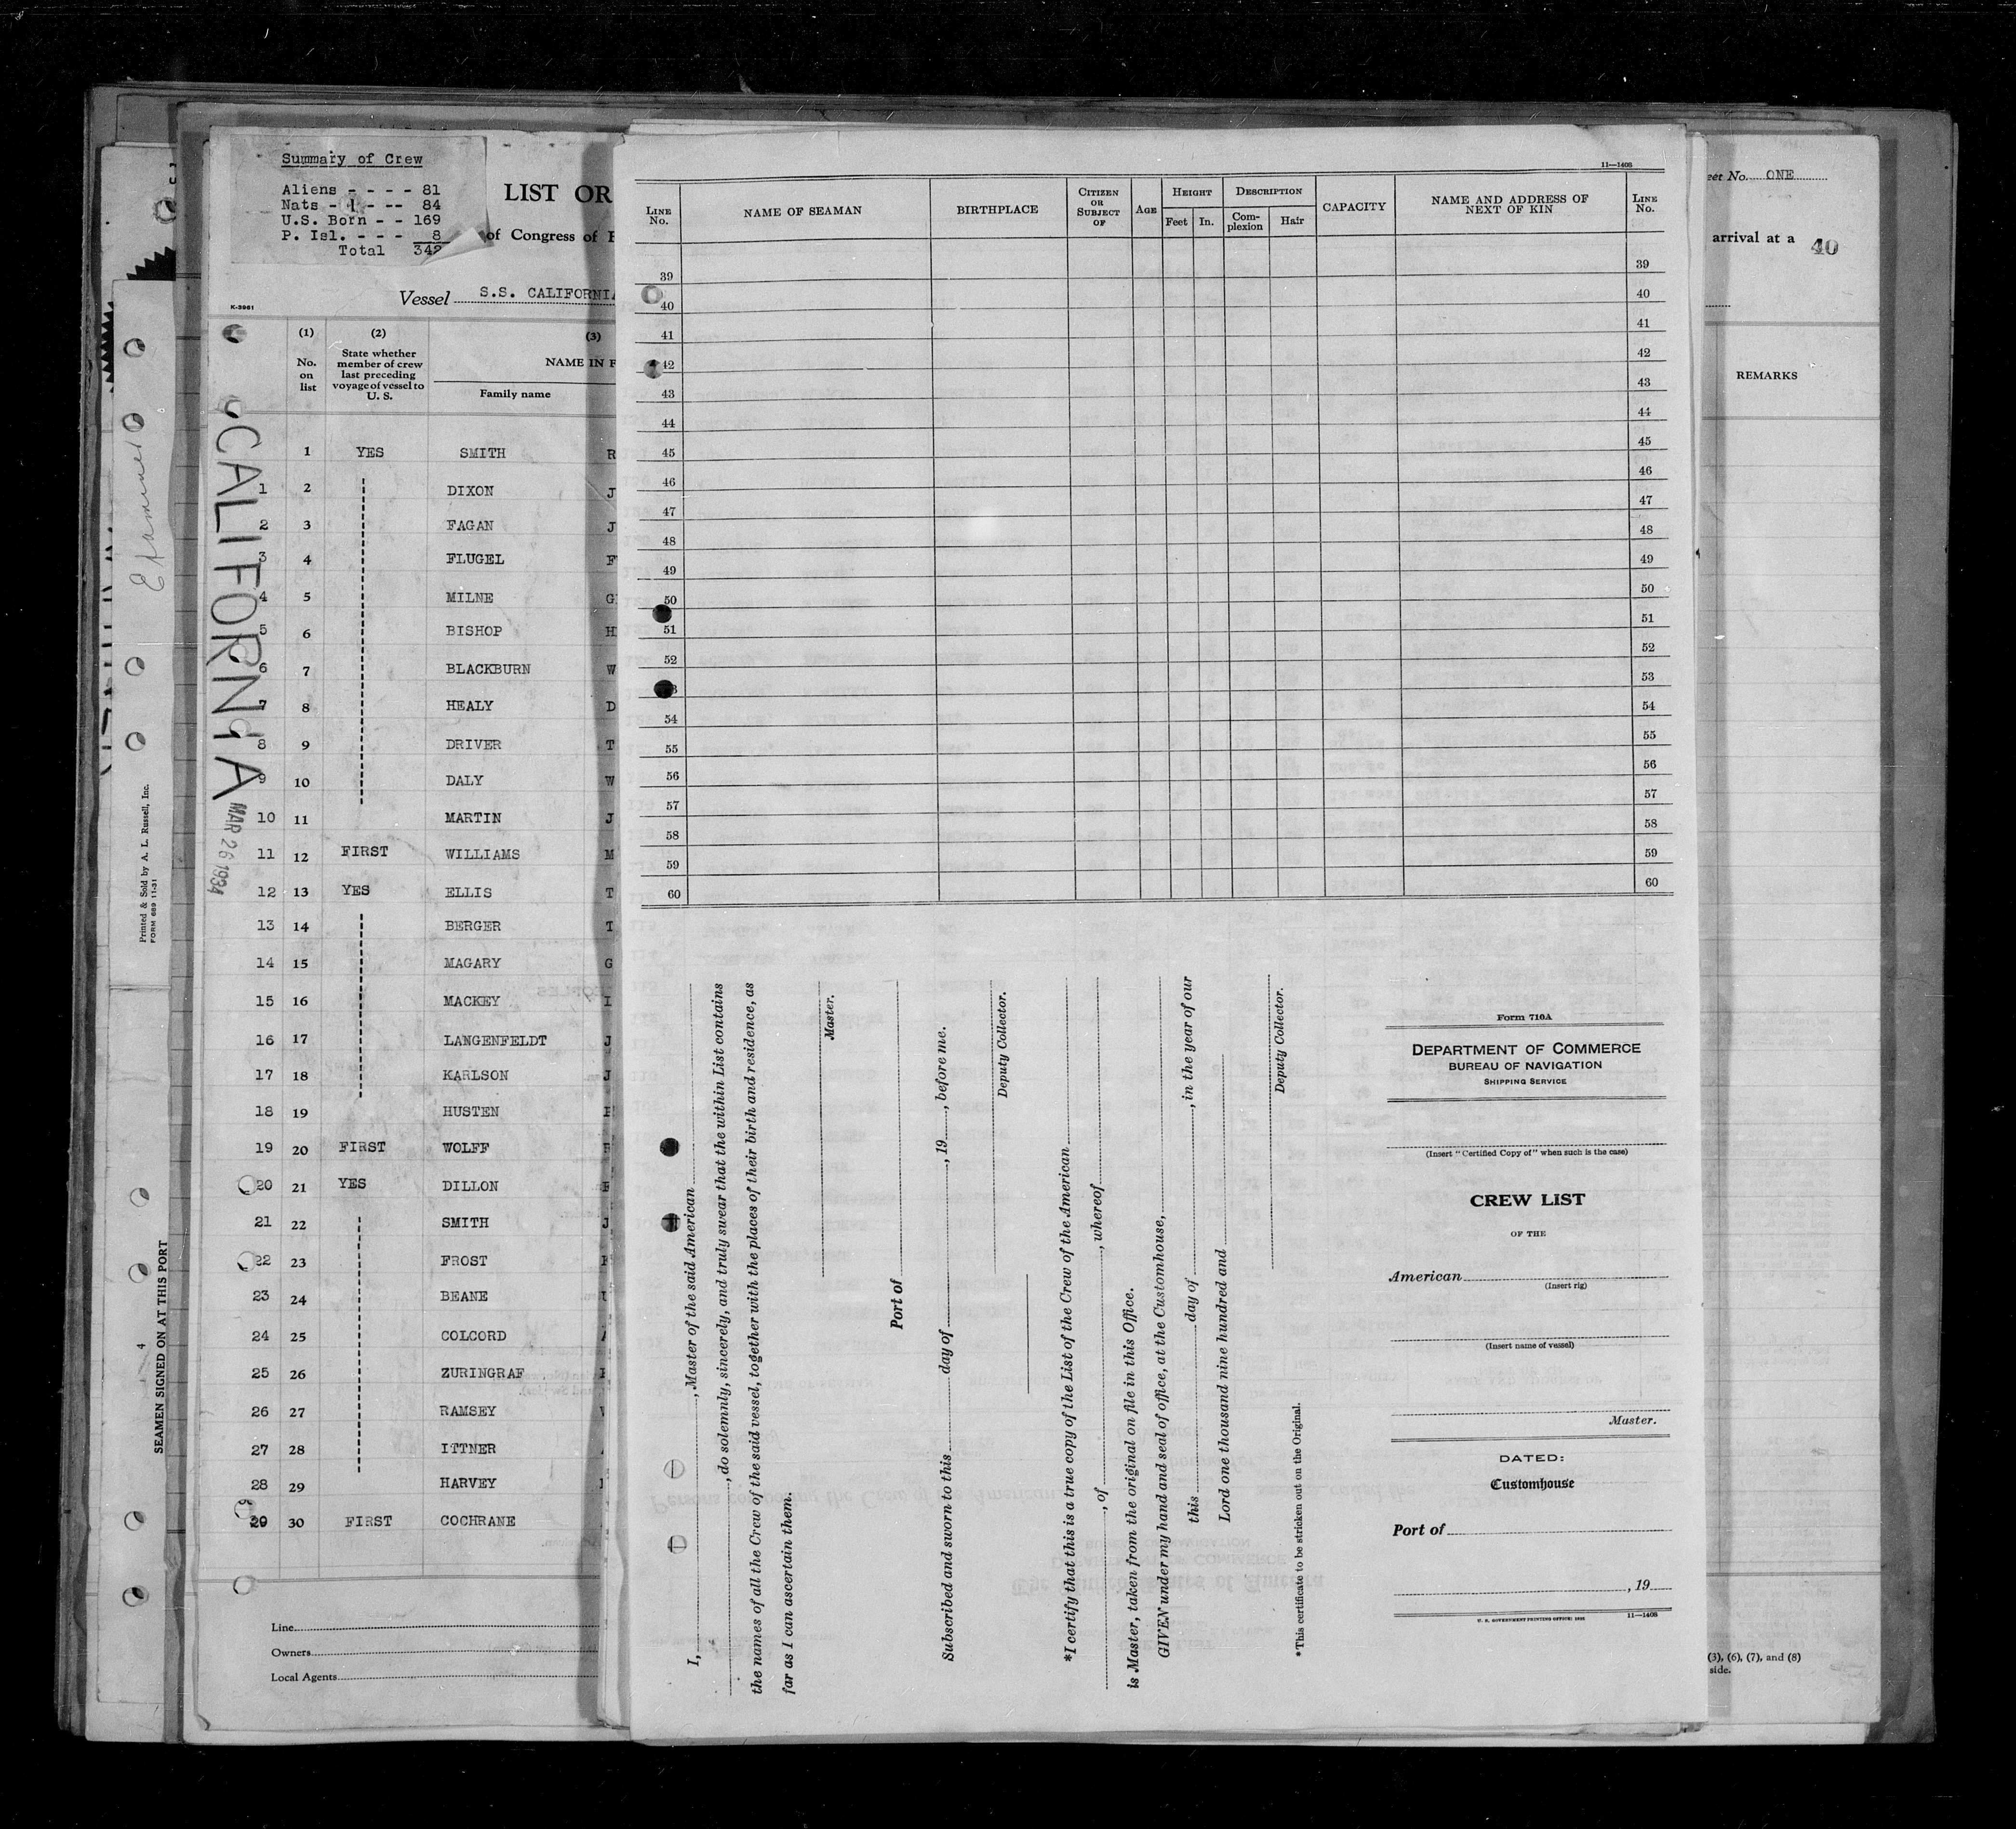 Summary of Crew
Aliens - - - - 81
Nats - - - -- 84
U.S. Born - - 169
P. Isl. - - - 8
Total 342
LIST OR
of Congress of
K-3961
Vessel S.S. CALIFORNIA
(1) (2) (3)
No. on list
State whether member of crew last preceding voyage of vessel to U. S.
NAME IN F
Family name
CALIFORNIA
MAR 26 1934
1 YES SMITH R
1 2 DIXON J
2 3 FAGAN J
3 4 FLUGEL F
4 5 MILNE G
5 6 BISHOP H
6 7 BLACKBURN W
7 8 HEALY D
8 9 DRIVER T
9 10 DALY W
10 11 MARTIN J
11 12 FIRST WILLIAMS M
12 13 YES ELLIS T
13 14 BERGER T
14 15 MAGARY G
15 16 MACKEY I
16 17 LANGENFELDT J
17 18 KARLSON J
18 19 HUSTEN
19 20 FIRST WOLFF
20 21 YES DILLON
21 22 SMITH J
22 23 FROST
23 24 BEANE
24 25 COLCORD
25 26 ZURINGRAF
26 27 RAMSEY
27 28 ITTNER
28 29 HARVEY
29 30 FIRST COCHRANE
Line
Owners
Local Agents
Printed & Sold by A. L. Russell, Inc.
FORM 689 11-31
4
SEAMEN SIGNED ON AT THIS PORT
11—1408
LINE No.
NAME OF SEAMAN
BIRTHPLACE
CITIZEN OR SUBJECT OF
AGE
HEIGHT
Feet In.
DESCRIPTION
Com-plexion Hair
CAPACITY
NAME AND ADDRESS OF NEXT OF KIN
LINE No.
39 39
40 40
41 41
42 42
43 43
44 44
45 45
46 46
47 47
48 48
49 49
50 50
51 51
52 52
53
54 54
55 55
56 56
57 57
58 58
59 59
60 60
I, , Master of the said American
, do solemnly, sincerely, and truly swear that the within List contains
the names of all the Crew of the said vessel, together with the places of their birth and residence, as
far as I can ascertain them.
Master.
Port of
Subscribed and sworn to this day of , 19 , before me.
Deputy Collector.
*I certify that this is a true copy of the List of the Crew of the American
, of , whereof
is Master, taken from the original on file in this Office.
GIVEN under my hand and seal of office, at the Customhouse,
this day of , in the year of our
Lord one thousand nine hundred and
Deputy Collector.
*This certificate to be stricken out on the Original.
Form 710A
DEPARTMENT OF COMMERCE
BUREAU OF NAVIGATION
SHIPPING SERVICE
(Insert "Certified Copy of" when such is the case)
CREW LIST
OF THE
American
(Insert rig)
(Insert name of vessel)
Master.
DATED:
Customhouse
Port of
, 19
U. S. GOVERNMENT PRINTING OFFICE 11—1408
eet No. ONE
arrival at a
40
REMARKS
(3), (6), (7), and (8)
side.